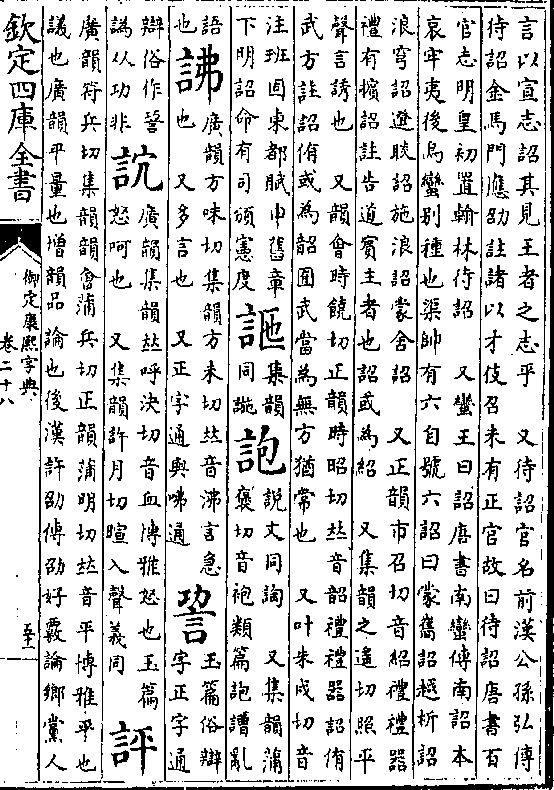 言以宣志詔其見王者之志乎　又待詔官名前漢公孫弘傳
待詔金馬門應劭註諸以才伎召未有正官故曰待詔唐書百
官志明皇初置翰林待詔　又蠻王曰詔唐書南蠻傳南詔本
哀牢夷後烏蠻别種也渠帥有六自號六詔曰蒙嶲詔越析詔
浪穹詔邆睒詔施浪詔蒙舍詔　又正韻市召切音紹禮禮器
禮有擯詔註告道賓主者也詔或為紹　又集韻之遥切照平
聲言誘也　又韻會時饒切正韻時昭切𠀤音韶禮禮器詔侑
武方註詔侑或為韶囿武當為無方猶常也　又叶朱戍切音
注班固東都賦申舊章
下明詔命有司頒憲度
集韻
同訑
䛌
説文同䛬　又集韻蒲
褒切音袍類篇䛌讂亂
語
也
誁
廣韻方味切集韻方未切𠀤音沸言急
也　又多言也　又正字通與咈通
玉篇俗辯
字正字通
辯俗作䇂
譌从功非
訹
廣韻集韻𠀤呼決切音血博雅怒也玉篇
怒呵也　又集韻許月切暄入聲義同
評
廣韻符兵切集韻韻會蒲兵切正韻蒲明切𠀤音平博雅平也
議也廣韻平量也增韻品論也後漢許劭傳劭好覈論鄉黨人
欽定四庫全書
御定康熙字典
卷二十八